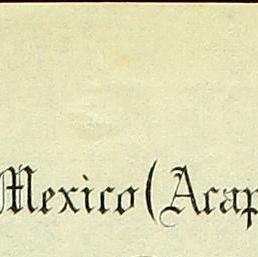 Mexico (Acap